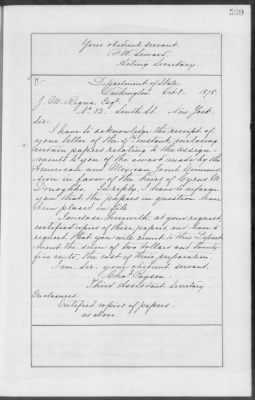 559
Your obedient servant.
F. W. Seward,
Acting Secretary.
Department of State,
Washington Oct 9. 1878.
J. M. Esqr.
No. 53. South St. New York.
Sir:
I have to acknowledge the receipt of
your letter of the 4th instant, enclosing
certain papers relating to the assign-
ments to you of the award made by the
American and Mexican Joint Commis-
sion in favor of the heirs of Cyrus M.
Donoghho. In reply I have to inform
you that the papers in question have
been placed on file.
I enclose herewith, at your request,
certified copies of these papers and have to
request that you will remit to this Depart-
ment the sum of two dollars and twenty
five cents, the cost of their preparation.
I am, sir, your obedient servant,
Chas. Payson.
Third Assistant Secretary.
Enclosures.
Certified copies of papers
as above